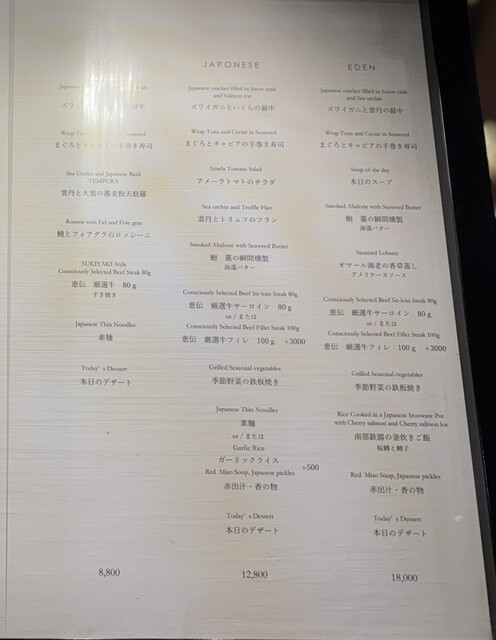 JAPONESE
EDEN
Japanese
ズワイガニ
の最中
Wrap Tuna
Seaweed
まぐろとキャビアの手巻き寿司
Sea Urchin and Japanese Basil
TEMPURA
雲丹と大葉の蕎麦粉天麩羅
Rossini with Eel and Foie gras
鰻とフォアグラのロッシーニ
SUKIYAKI Style
Consciously Selected Beef Steak 80g
恵伝 厳選牛 80 g
すき焼き
Japanese Thin Noodles
素麺
Today's Dessert
本日のデザート
8,800
Japanese cracker filled in Snow crab
and Salmon roe
ズワイガニといくらの最中
Wrap Tuna and Caviar in Seaweed
まぐろとキャビアの手巻き寿司
Amela Tomato Salad
アメーラトマトのサラダ
Sea urchin and Truffle Flan
雲丹とトリュフのフラン
Smoked Abalone with Seaweed Butter
鮑 藁の瞬間燻製
海藻バター
Consciously Selected Beef Sir-loin Steak 80g
恵伝 厳選牛サーロイン 80 g
or / または
Consciously Selected Beef Fillet Steak 100g
恵伝 厳選牛フィレ 100 g +3000
Grilled Seasonal-vegetables
季節野菜の鉄板焼き
Japanese Thin Noodles
素麺
or / または
Garlic Rice
ガーリックライス +500
Red Miso Soup, Japanese pickles
赤出汁・香の物
Today's Dessert
本日のデザート
12,800
Japanese cracker filled in Snow crab
and Sea urchin
ズワイガニと雲丹の最中
Wrap Tuna and Caviar in Seaweed
まぐろとキャビアの手巻き寿司
Soup of the day
本日のスープ
Smoked Abalone with Seaweed Butter
鮑 藁の瞬間燻製
海藻バター
Steamed Lobster
オマール海老の香草蒸し
アメリケーヌソース
Consciously Selected Beef Sir-loin Steak 80g
恵伝 厳選牛サーロイン 80 g
or / または
Consciously Selected Beef Fillet Steak 100g
恵伝 厳選牛フィレ 100 g +3000
Grilled Seasonal-vegetables
季節野菜の鉄板焼き
Rice Cooked in a Japanese Ironware Pot
with Cherry salmon and Cherry salmon roe
南部鉄器の釜炊きご飯
桜鱒と鱒子
Red Miso Soup, Japanese pickles
赤出汁・香の物
Today's Dessert
本日のデザート
18,000